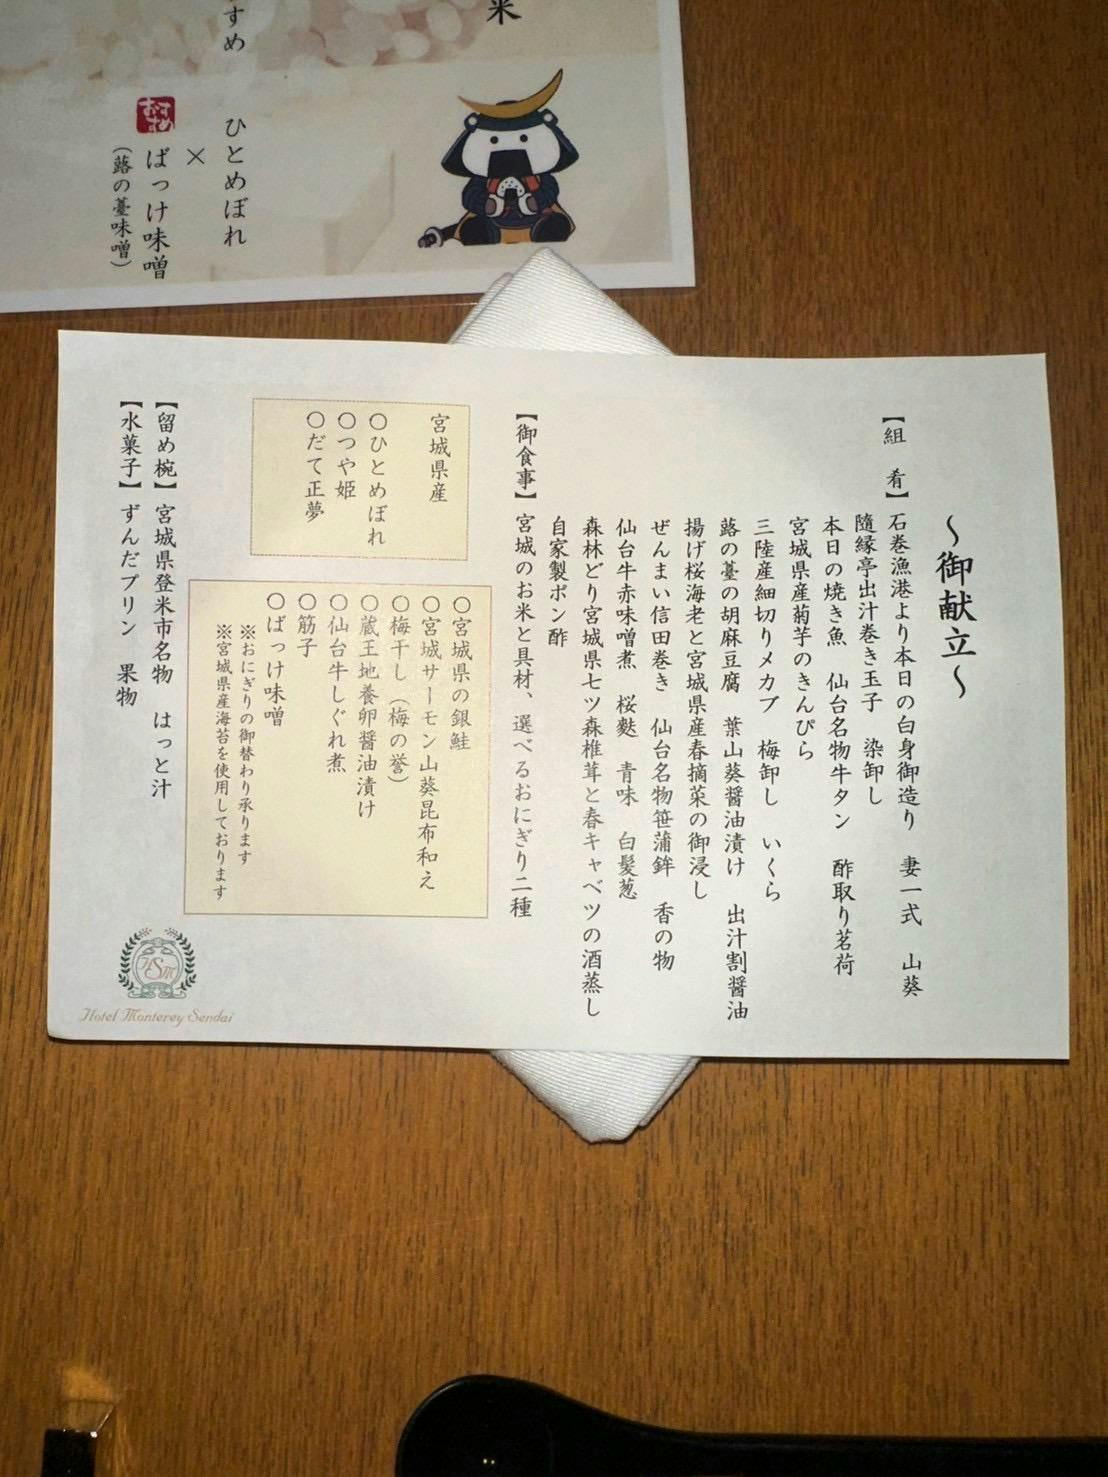 米
すめ
ひとめぼれ
×
おすすめ
ばっけ味噌
(蕗の薹味噌)
～御献立～
【組 肴】 石巻漁港より本日の白身御造り 妻一式 山葵
隨縁亭出汁巻き玉子 染卸し
本日の焼き魚 仙台名物牛タン 酢取り茗荷
宮城県産菊芋のきんぴら
三陸産細切りメカブ 梅卸し いくら
蕗の薹の胡麻豆腐 葉山葵醤油漬け 出汁割醤油
揚げ桜海老と宮城県産春摘菜の御浸し
ぜんまい信田巻き 仙台名物笹蒲鉾 香の物
仙台牛赤味噌煮 桜麩 青味 白髪葱
森林どり宮城県七ツ森椎茸と春キャベツの酒蒸し
自家製ポン酢
【御食事】 宮城のお米と具材、選べるおにぎり二種
宮城県産
〇ひとめぼれ
〇つや姫
〇だて正夢
〇宮城県の銀鮭
〇宮城サーモン山葵昆布和え
〇梅干し（梅の誉）
〇蔵王地養卵醤油漬け
〇仙台牛しぐれ煮
〇筋子
〇ばっけ味噌
※おにぎりの御替わり承ります
※宮城県産海苔を使用しております
【留め椀】 宮城県登米市名物 はっと汁
【水菓子】 ずんだプリン 果物
HSM
Hotel Monterey Sendai